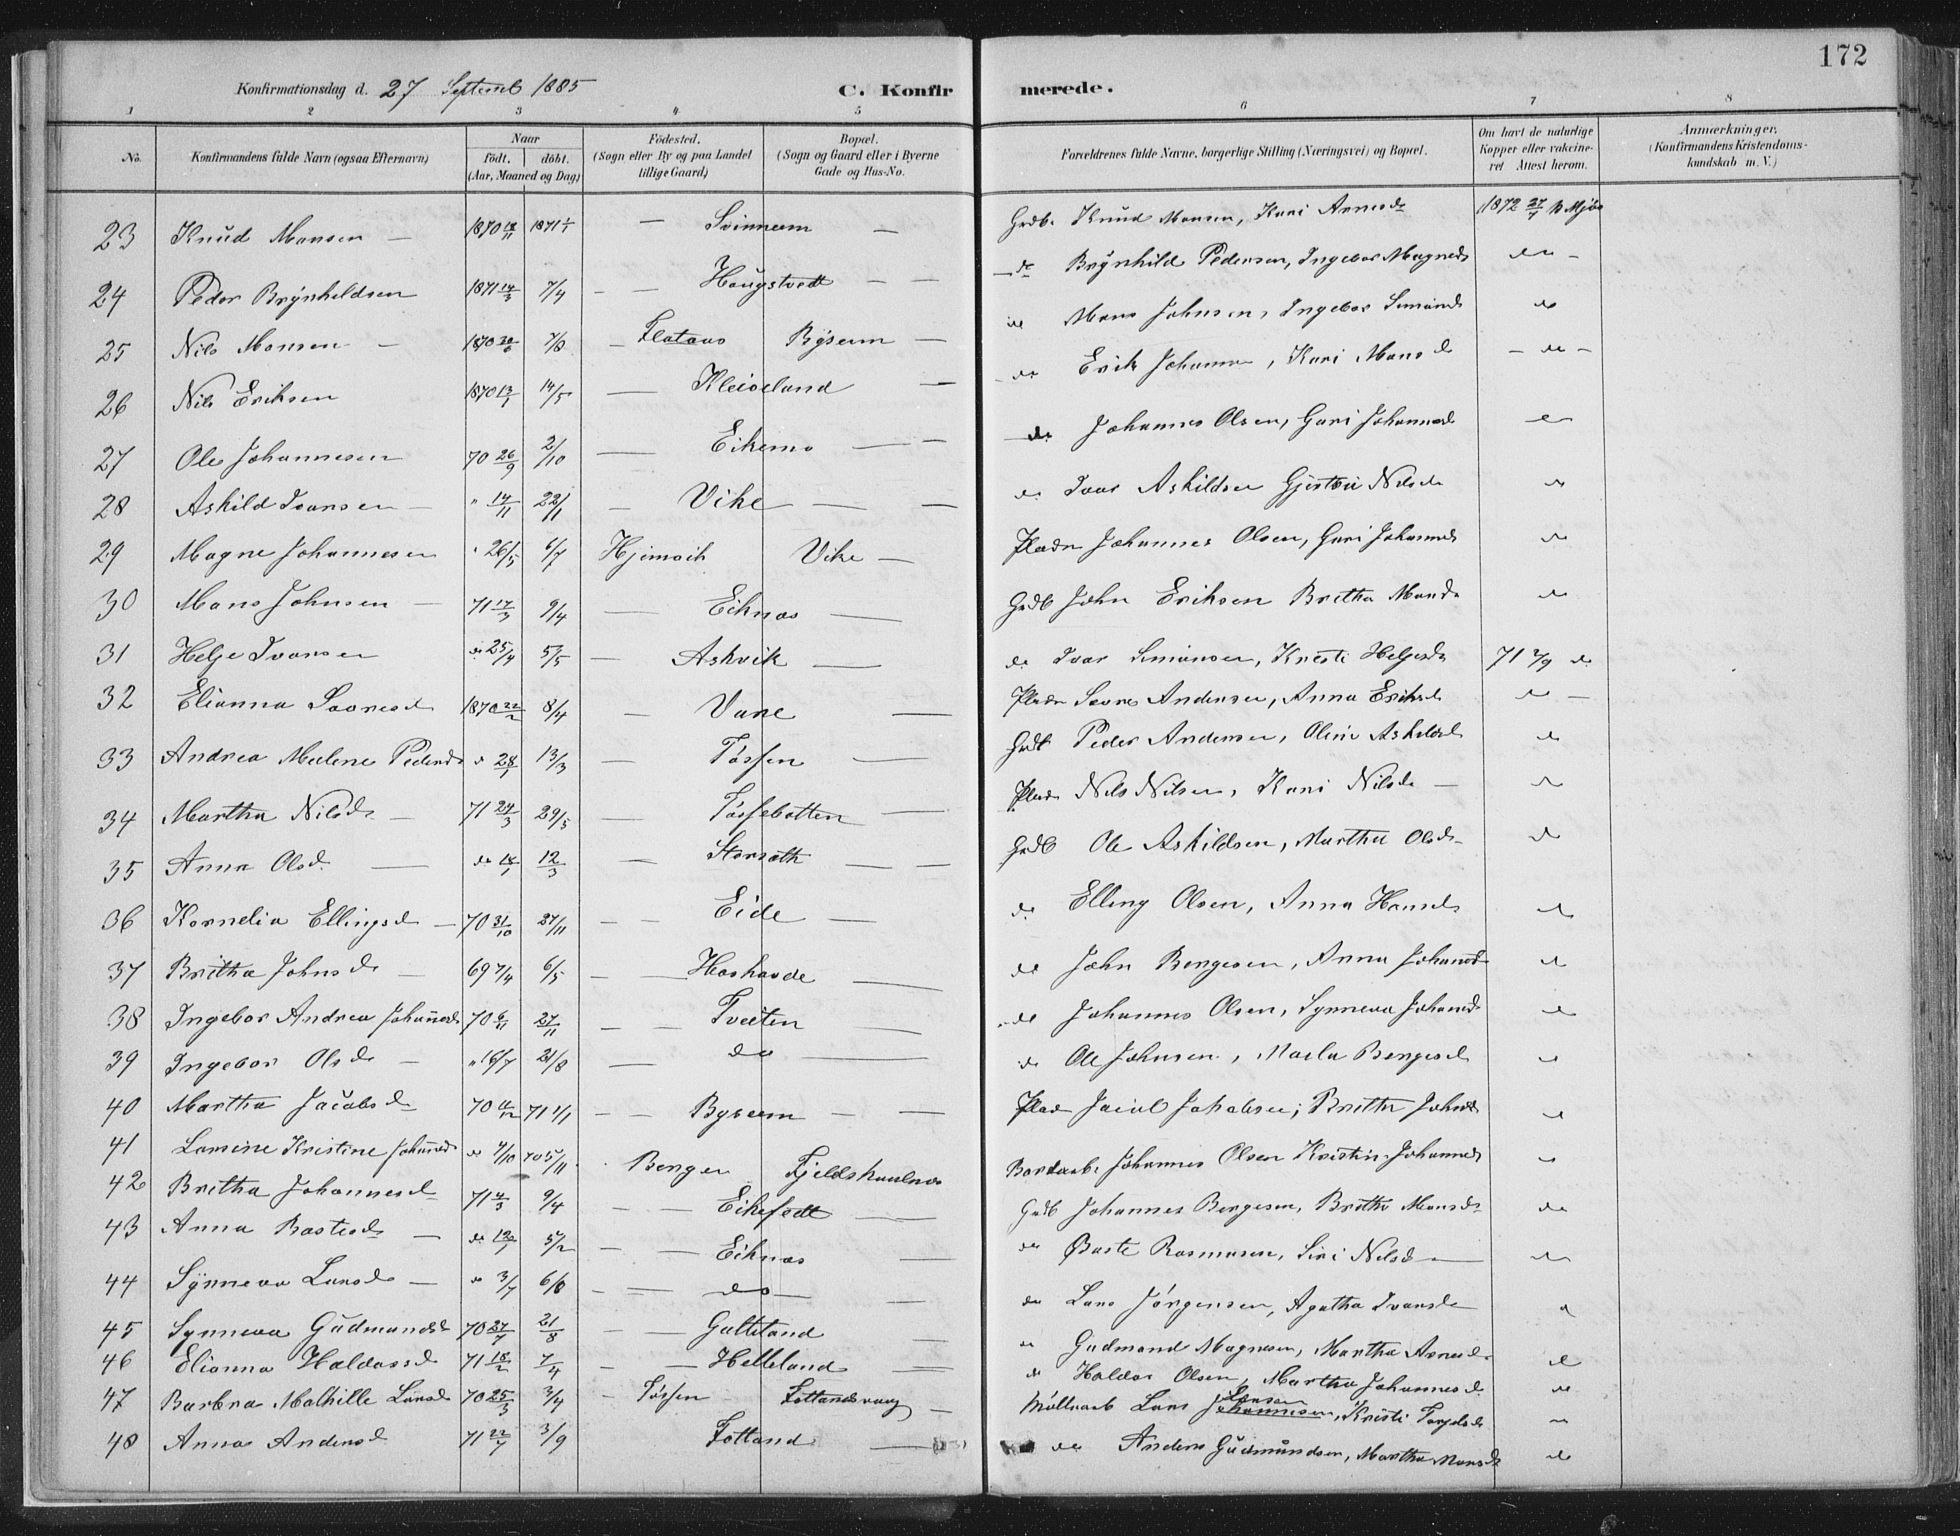 172
Konfirmationsdag d. 27 Septemb 1885 C. Konfirmerede.
1 2 3 4 5 6 7 8
No.
Konfirmandens fulde Navn (ogsaa Efternavn)
Naar
födt. döbt.
(Aar, Maaned og Dag)
Födested.
(Sogn eller By og paa Landet
tillige Gaard)
Bopæl.
(Sogn og Gaard eller i Byerne
Gade og Hus-No.
Forældrenes fulde Navne, borgerlige Stilling (Næringsvei) og Bopæl.
Om havt de naturlige
Kopper eller vakcine-
ret Attest herom.
Anmærkninger.
(Konfirmandens Kristendoms-
kundskab m. V.)
23 Knud Monsen — 1870 18/11 1871 1/1 — Svinneim — Grdb. Knud Monsen, Kari Arnesdr 1872 27/1 Mjös
24 Peder Brynhildsen 1871 14/3 7/4 — — Hougstvedt — — do Brynhild Pedersen, Ingebor Magnesd do —
25 Nils Monsen — 1870 20/6 7/8 — Flataas Byseim — do Mons Johnsen, Ingebor Simonsd do
26 Nils Eriksen 1870 13/1 14/5 — Kleiveland — do Erik Johannes, Kari Monsd — do —
27 Ole Johannesen 70 26/9 2/10 — Eikemo — — do Johannes Olsen, Guri Johannesd do
28 Askild Ivarsen — " 14/11 22/11 — Vike — — do Ivar Askildsen Gjertrü Nilsdr do
29 Magne Johannesen " 26/5 6/7 Hjimvik Vike — Pladsm Johannes Olsen, Guri Johannesd do
30 Mons Johnsen — 71 17/3 9/4 — Eiknes — Grdb John Eriksen Britha Monsdr do
31 Helje Ivarsen do 25/4 5/5 — Askvik — do Ivar Simonsen, Kristi Heljesdr 71 2/9 do
32 Elianna Sœresd 1870 22/2 8/4 — Vare — Pladsm Soves Andersen, Anna Eriksd do —
33 Andrea Malene Pedersd do 28/1 13/3 — Tössen — Grdb Peder Andersen, Oline Askildsd do
34 Martha Nilsdr — 71 24/3 29/5 — Tössebotten — Plads Nils Nilsen, Kari Nilsdr — do
35 Anna Olsd. — do 18/1 12/3 — Storsæth — Grdb Ole Askildsen, Martha Olsdr do
36 Kornelia Ellingsd — 70 31/10 27/11 — — Eide — do Elling Olsen, Anna Hansdr do
37 Britha Johnsdr — 69 7/4 6/5 — — Hoshovde — do John Bergesen, Anna Johannesd do
38 Ingebor Andrea Johañesd 70 6/11 27/11 — — Tveiten — do Johannes Olsen, Synneva Johannesd do
39 Ingebor Olsdr — " 16/7 21/8 — — do — do Ole Johnsen, Marta Bergesd do
40 Martha Jacobsd 70 11/12 71 1/1 — — Byseim — — Plads Jacob Jakobsen, Britha Johnsd do
41 Lamine Kristine Johañesd do 4/10 70 5/11 Bergen Fjeldskaalnes Bordarb. Johannes Olsen Kristin Johannesd do
42 Britha Johannesd 71 4/3 9/4 — — Eikefedt — Grdb Johannes Bergesen, Britha Monsdr do
43 Anna Bastesdr — do 12/1 5/2 — — Eiknes — do Baste Rasmusen, Siri Nilsd — do
44 Synneva Larsd — do 3/7 6/8 — — do — do Lars Jörgensen, Agatha Ivarsdr do
45 Synneva Gudmundsd 70 27/7 21/8 — — Galteland — do Gudmund Magnesen, Martha Arnesdr
46 Elianna Haldorsd 71 18/2 7/4 — — Helleland — do Haldor Olsen, Martha Johannesd do
47 Barbra Mathille Larsd 70 25/3 3/4 — Tössen Totlandsvaag — Möllearb Lars Johannesen Larsen, Kristi Torjelsd do
48 Anna Andersd 71 22/7 3/9 — Totland — do Anders Gudmundsen, Martha Monsdr do